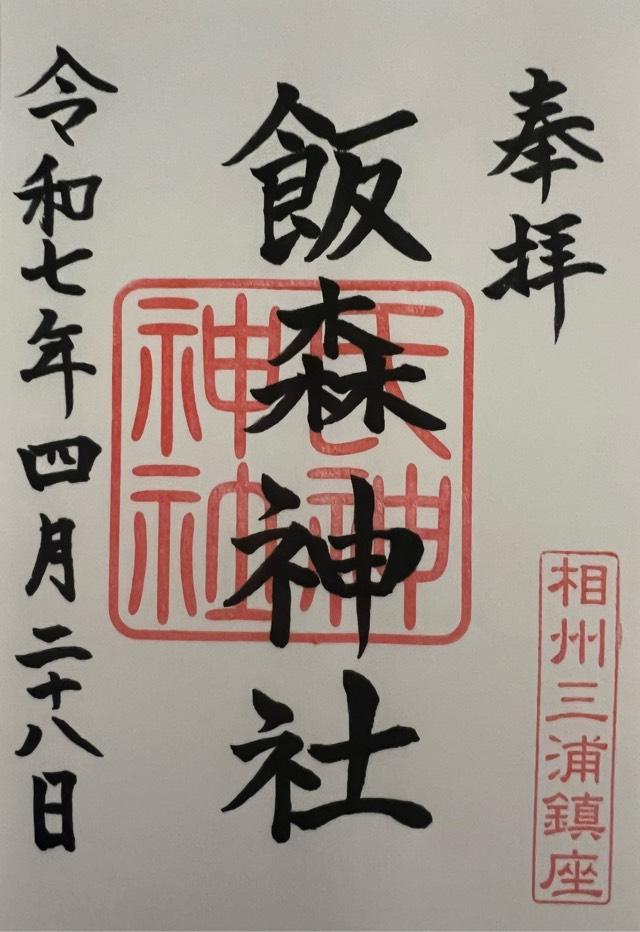 奉拝
相州三浦鎮座
飯森神社
氏神
神社
令和七年四月二十八日